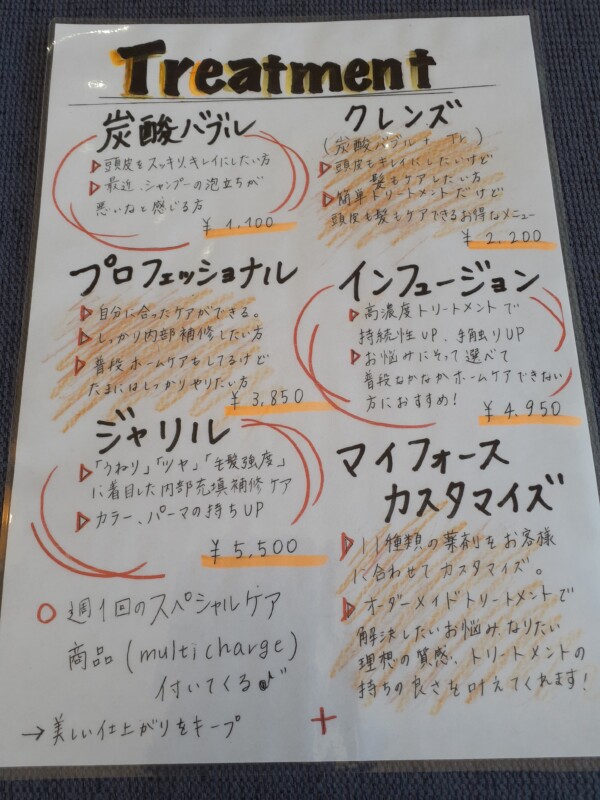 Treatment
炭酸バブル
頭皮をスッキリ、キレイにしたい方
最近、シャンプーの泡立ちが
悪いなと感じる方
¥ 1,100
クレンズ
(炭酸バブル + Tr)
頭皮もキレイにしたいけど
髪もケアしたい方
簡単トリートメントだけど
頭皮も髪もケアできるお得なメニュー
¥ 2,200
プロフェッショナル
自分に合ったケアができる。
しっかり内部補修したい方
普段ホームケアもしてるけど
たまにはしっかりやりたい方
¥ 3,850
インフュージョン
高濃度トリートメントで
持続性UP、手触りUP
お悩みにそって選べて
普段なかなかホームケアできない
方におすすめ!
¥ 4,950
ジャリル
「うねり」「ツヤ」「毛髪強度」
に着目した内部充填補修ケア
カラー、パーマの持ちUP
¥ 5,500
マイフォース
カスタマイズ
11種類の薬剤をお客様
に合わせてカスタマイズ。
オーダーメイドトリートメントで
解決したいお悩み、なりたい
理想の質感、トリートメントの
持ちの良さを叶えてくれます!
○ 週1回のスペシャルケア
商品(multicharge)
付いてくる
→ 美しい仕上がりをキープ
+